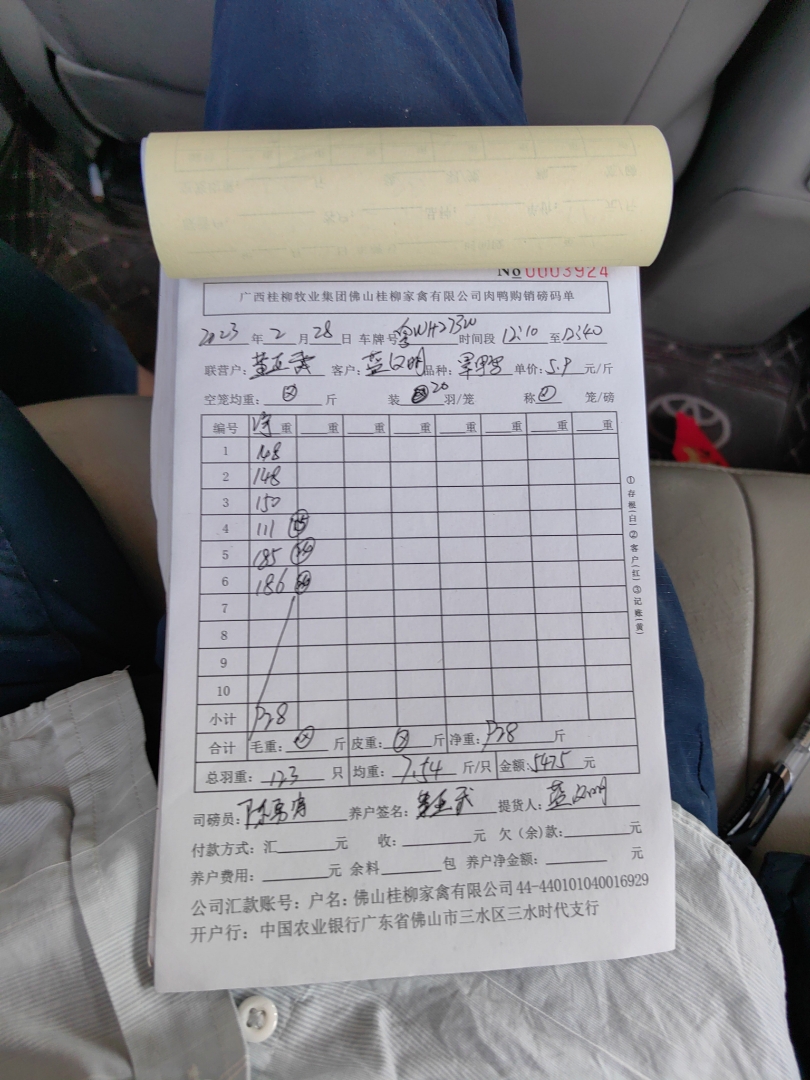 No 0003924
广西桂柳牧业集团佛山桂柳家禽有限公司肉鸭购销磅码单
2023 年 2 月 28 日 车牌号 WH273W 时间段 12:10 至 12:40
联营户: 客户: 蓝汉明 品种: 单价: 5.9 元/斤
空笼均重: 斤 装 20 羽/笼 称 笼/磅
编号 净重 重 重 重 重 重 重 重
1 148
2 148
3 150
4 111
5 185
6 186
7
8
9
10
小计 928
合计 毛重: 斤 皮重: 斤 净重: 928 斤
总羽重: 123 只 均重: 7.54 斤/只 金额: 5475 元
司磅员: 养户签名: 提货人: 蓝汉明
付款方式: 汇 元 收: 元 欠(余)款: 元
养户费用: 元 余料 包 养户净金额: 元
公司汇款账号: 户名: 佛山桂柳家禽有限公司 44-440101040016929
开户行: 中国农业银行广东省佛山市三水区三水时代支行
①存根(白)②客户(红)③记账(黄)